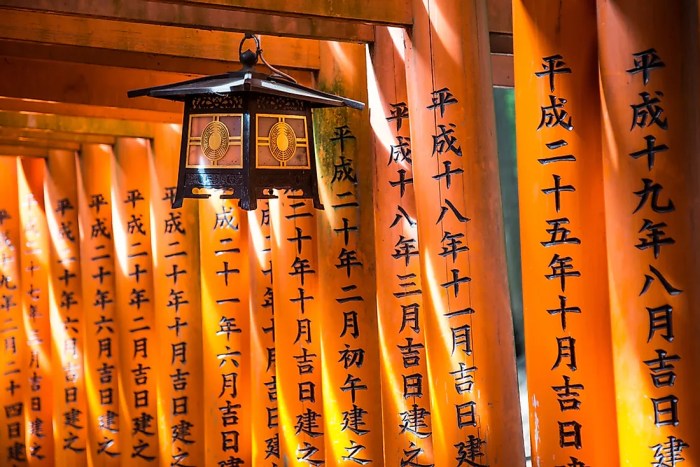 平成十九年八月吉日建
平成二十五年十月吉日
平成十八年十一月吉日建
平成十八年三月吉日建之
平成二十年二月初午建之
二十年十月吉日建之
月吉日建之
成二十一年六月吉日
平成二十年十月吉日建之
平成二十年二月吉日建之
平成二十年六月吉日建之
平成二十年二月吉日建之